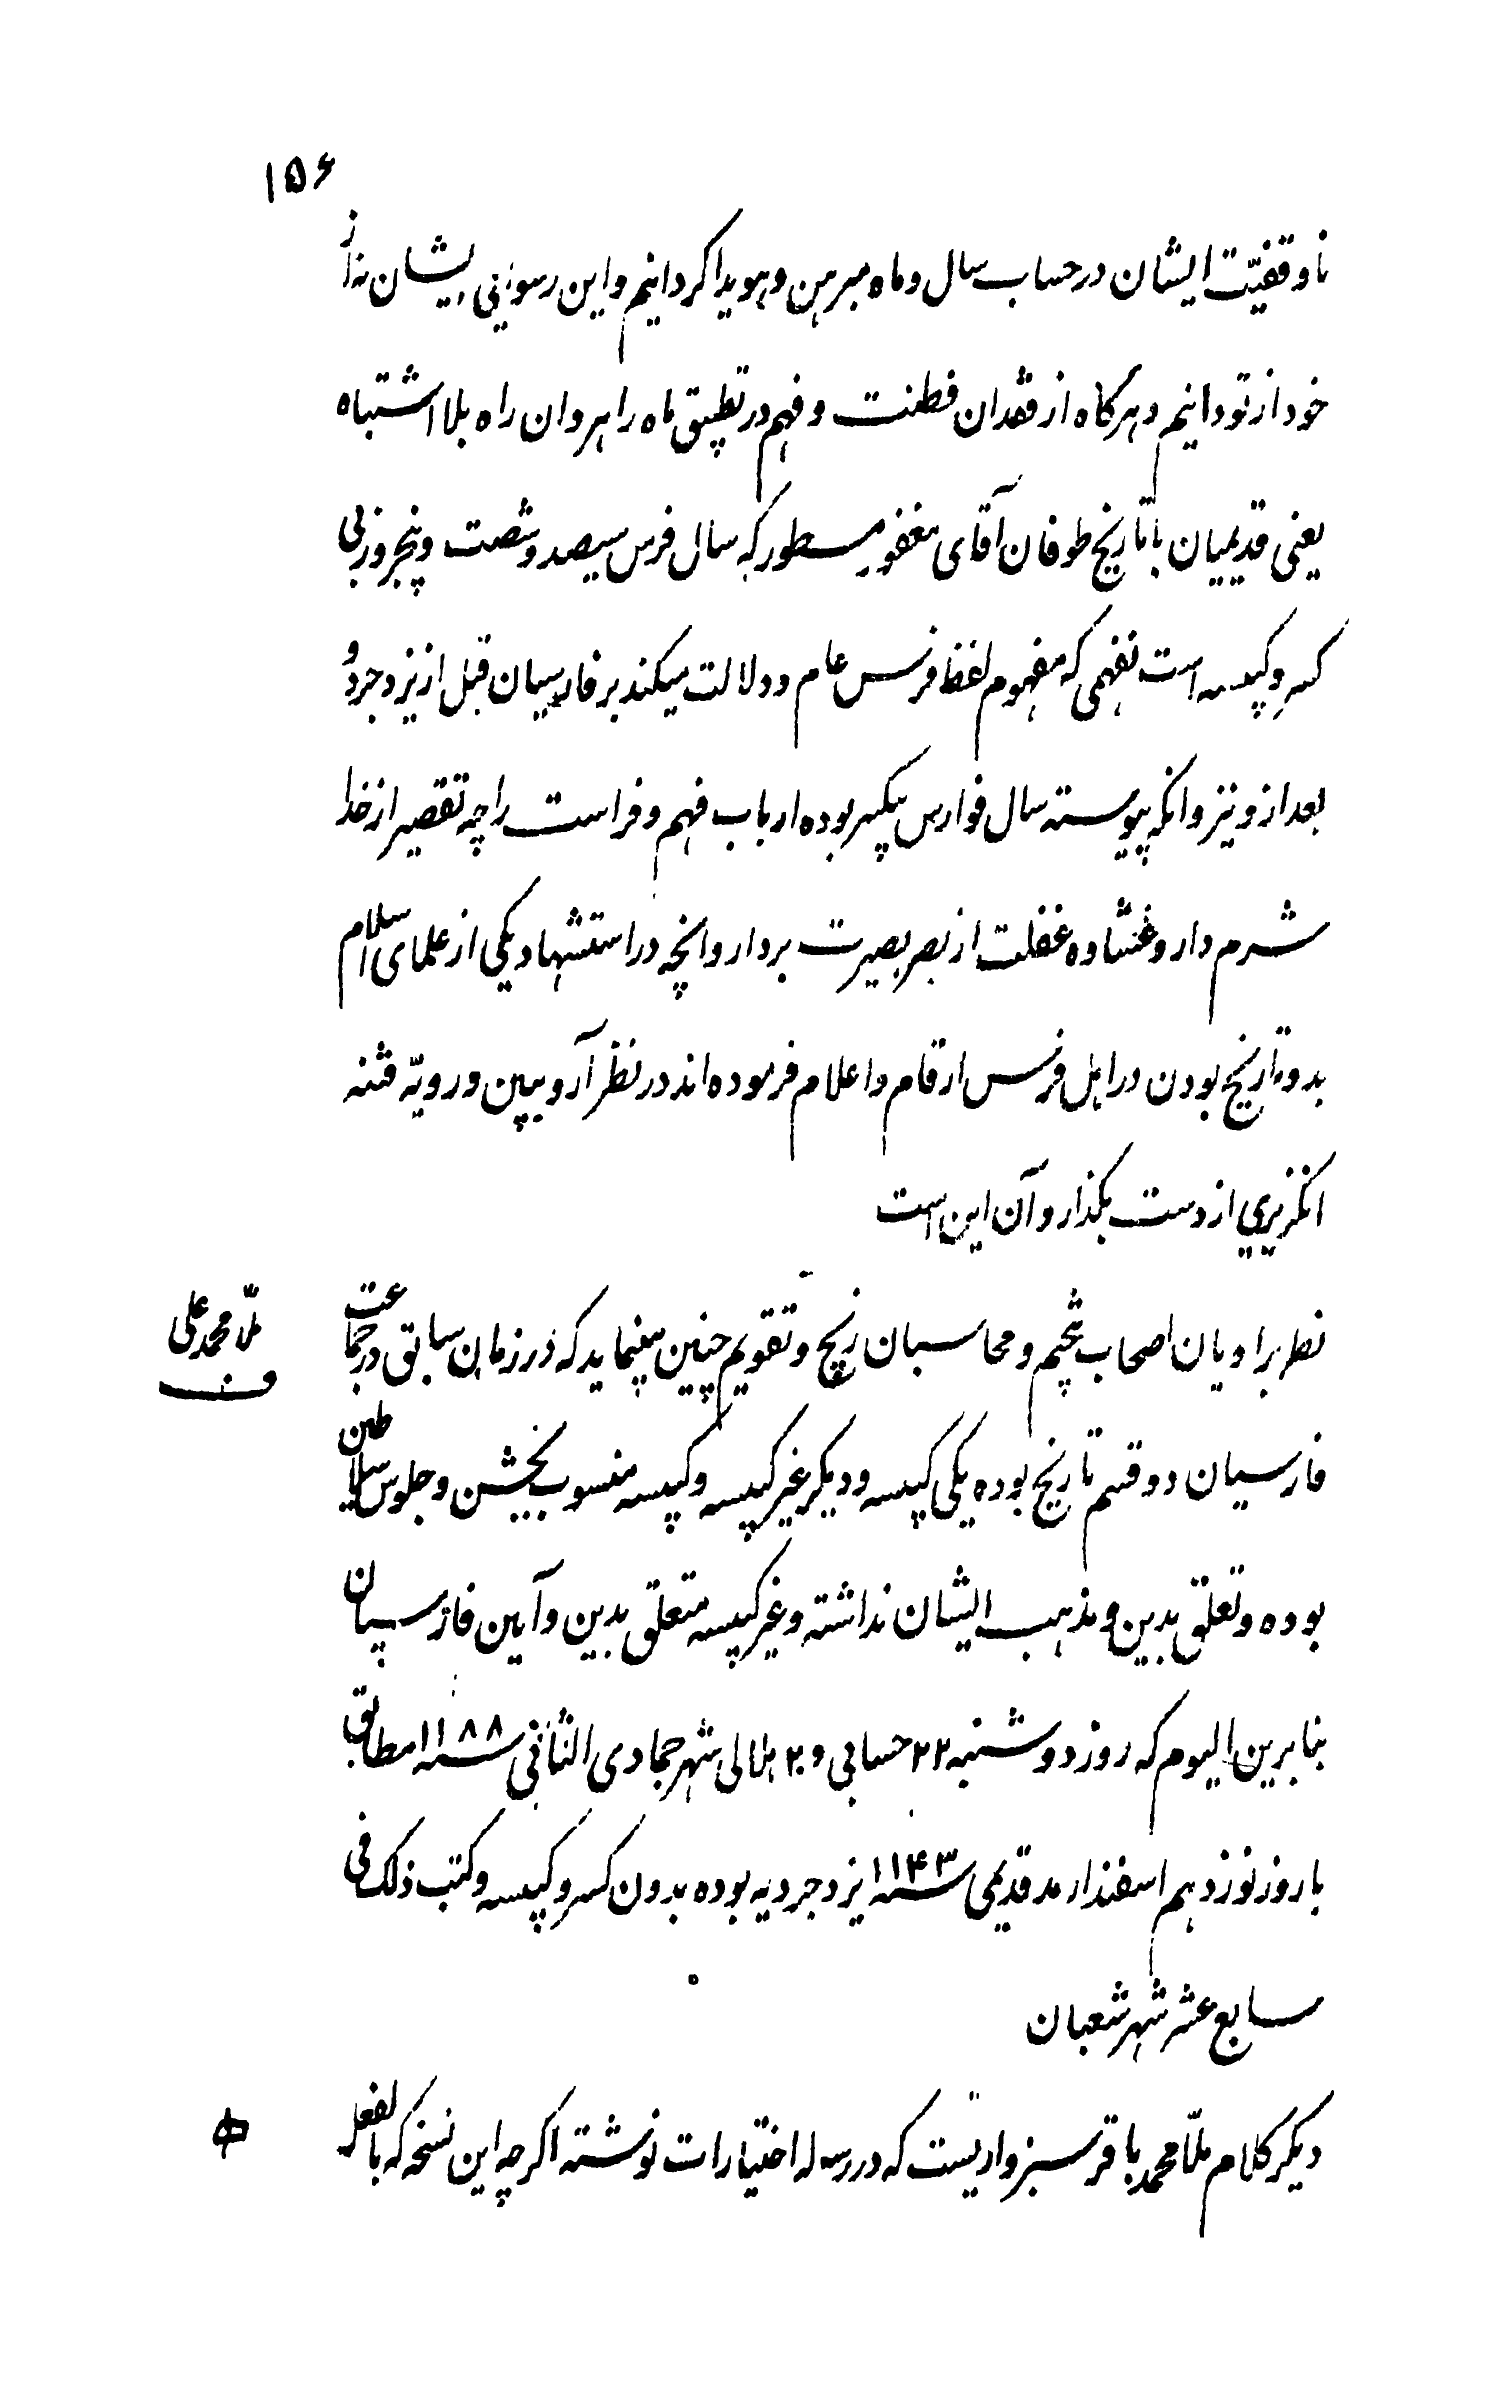 ۱۵۶
ناوقفیّت ایشان در حساب سال و ماه مبرهن و هویدا کردانیم و این رسوایی ایشان نه از
خود از تو دانیم و هرکاه از فقدان فطنت و فهم در تطبیق ماه راهروان راه بلا اشتباه
یعنی قدیمیان با تاریخ طوفان آقای مغفور مسطور که سال فرس سیصد و شصت و پنجروز بی
کسر و کبیسه است نفهمی که مفهوم لفظ فرس عام و دلالت میکند بر فارسیان قبل از یزدجرد و
بعد از و نیز وانکه پیوسته سال فوارس بیکسر بوده ارباب فهم و فراست را چه تقصیر از خدا
شرم دار و غشاوه غفلت از بصر بصیرت بردار وانچه در استشهاد یکی از علمای اسلام
بدو تاریخ بودن در اهل فرس ارقام و اعلام فرموده اند در نظر آر و ببین و رویّه فتنه
انکیزیی از دست بکذار و آن این است
نظر برا ویان اصحاب تنجیم و محاسبان زیج و تقویم چنین مینماید که در زمان سابق در جماعت
ملّا محمد علی
فارسیان دو قسم تاریخ بوده یکی کبیسه و دیکر غیر کبیسه و کبیسه منسوب بجشن و جلوس سلاطین
بوده و تعلق بدین و مذهب ایشان نداشته و غیر کبیسه متعلق بدین و آیین فارسیان
بنابرین الیوم که روز دوشنبه ۲۲ حسابی و ۲۰ هلالی شهر جمادی الثانی سنه ۱۱۸۸ مطابق
با روز نوزدهم اسفندارمد قدیمی سنه ۱۱۴۳ یزدجردیه بوده بدون کسر و کبیسه و کتب ذلک فی
سابع عشر شهر شعبان
دیکر کلام ملّا محمد باقر سبزواریست که در رساله اختیارات نوشته اکرچه این نسخه که بالفعل